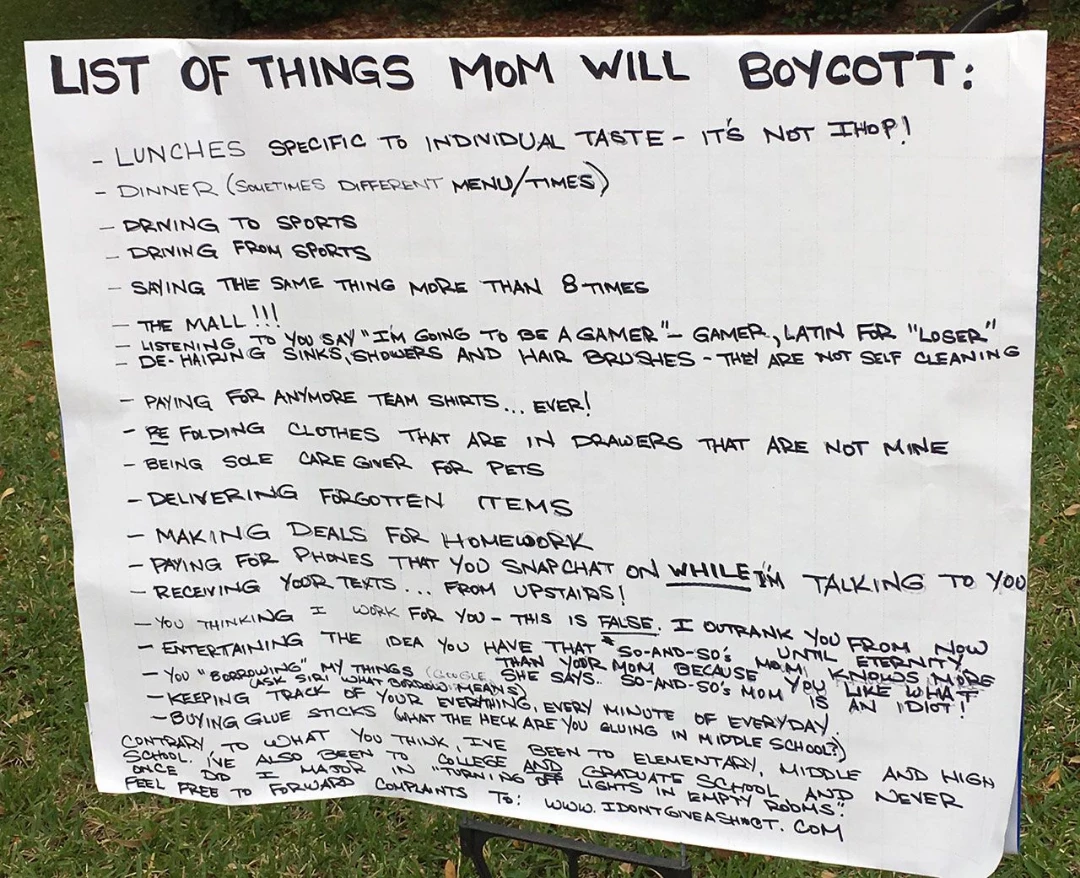 LIST OF THINGS MOM WILL BOYCOTT:
- LUNCHES SPECIFIC TO INDIVIDUAL TASTE - IT'S NOT IHOP!
- DINNER (SOMETIMES DIFFERENT MENU/TIMES)
- DRIVING TO SPORTS
- DRIVING FROM SPORTS
- SAYING THE SAME THING MORE THAN 8 TIMES
- THE MALL!!!
- LISTENING TO YOU SAY "I'M GOING TO BE A GAMER" - GAMER, LATIN FOR "LOSER"
- DE-HAIRING SINKS, SHOWERS AND HAIR BRUSHES - THEY ARE NOT SELF CLEANING
- PAYING FOR ANYMORE TEAM SHIRTS... EVER!
- RE FOLDING CLOTHES THAT ARE IN DRAWERS THAT ARE NOT MINE
- BEING SOLE CARE GIVER FOR PETS
- DELIVERING FORGOTTEN ITEMS
- MAKING DEALS FOR HOMEWORK
- PAYING FOR PHONES THAT YOU SNAPCHAT ON WHILE I'M TALKING TO YOU
- RECEIVING YOUR TEXTS... FROM UPSTAIRS!
- YOU THINKING I WORK FOR YOU - THIS IS FALSE. I OUTRANK YOU FROM NOW UNTIL ETERNITY.
- ENTERTAINING THE IDEA YOU HAVE THAT "SO-AND-SO'S MOM KNOWS MORE
THAN YOUR MOM BECAUSE YOU LIKE WHAT
SHE SAYS.. SO-AND-SO'S MOM IS AN IDIOT!
- YOU "BORROWING" MY THINGS (GOOGLE
(ASK SIRI WHAT BORROW MEANS)
- KEEPING TRACK OF YOUR EVERYTHING, EVERY MINUTE OF EVERYDAY.
- BUYING GLUE STICKS (WHAT THE HECK ARE YOU GLUING IN MIDDLE SCHOOL?)
CONTRARY TO WHAT YOU THINK, I'VE BEEN TO ELEMENTARY, MIDDLE AND HIGH
SCHOOL. I'VE ALSO BEEN TO COLLEGE AND GRADUATE SCHOOL AND NEVER
ONCE DID I MAJOR IN "TURNING OFF LIGHTS IN EMPTY ROOMS."
FEEL FREE TO FORWARD COMPLAINTS TO: WWW.IDONTGIVEASH*CT.COM